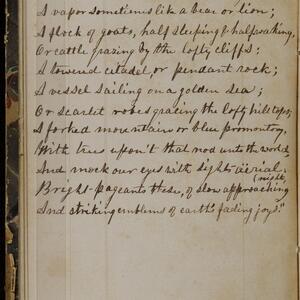 A vapor sometimes like a bear or lion;
A flock of goats, half sleeping & half waking,
Or cattle grazing by the lofty cliffs;
A towered citadel, or pendant rock;
A vessel sailing on a golden sea;
Or scarlet robes gracing the lofty hill tops;
A forked mountain or blue promontory,
With trees upon't that nod unto the world,
And mock our eyes with sights aërial;
Bright pageants these, of slow approaching
(night,
And striking emblems of earth's fading joys."